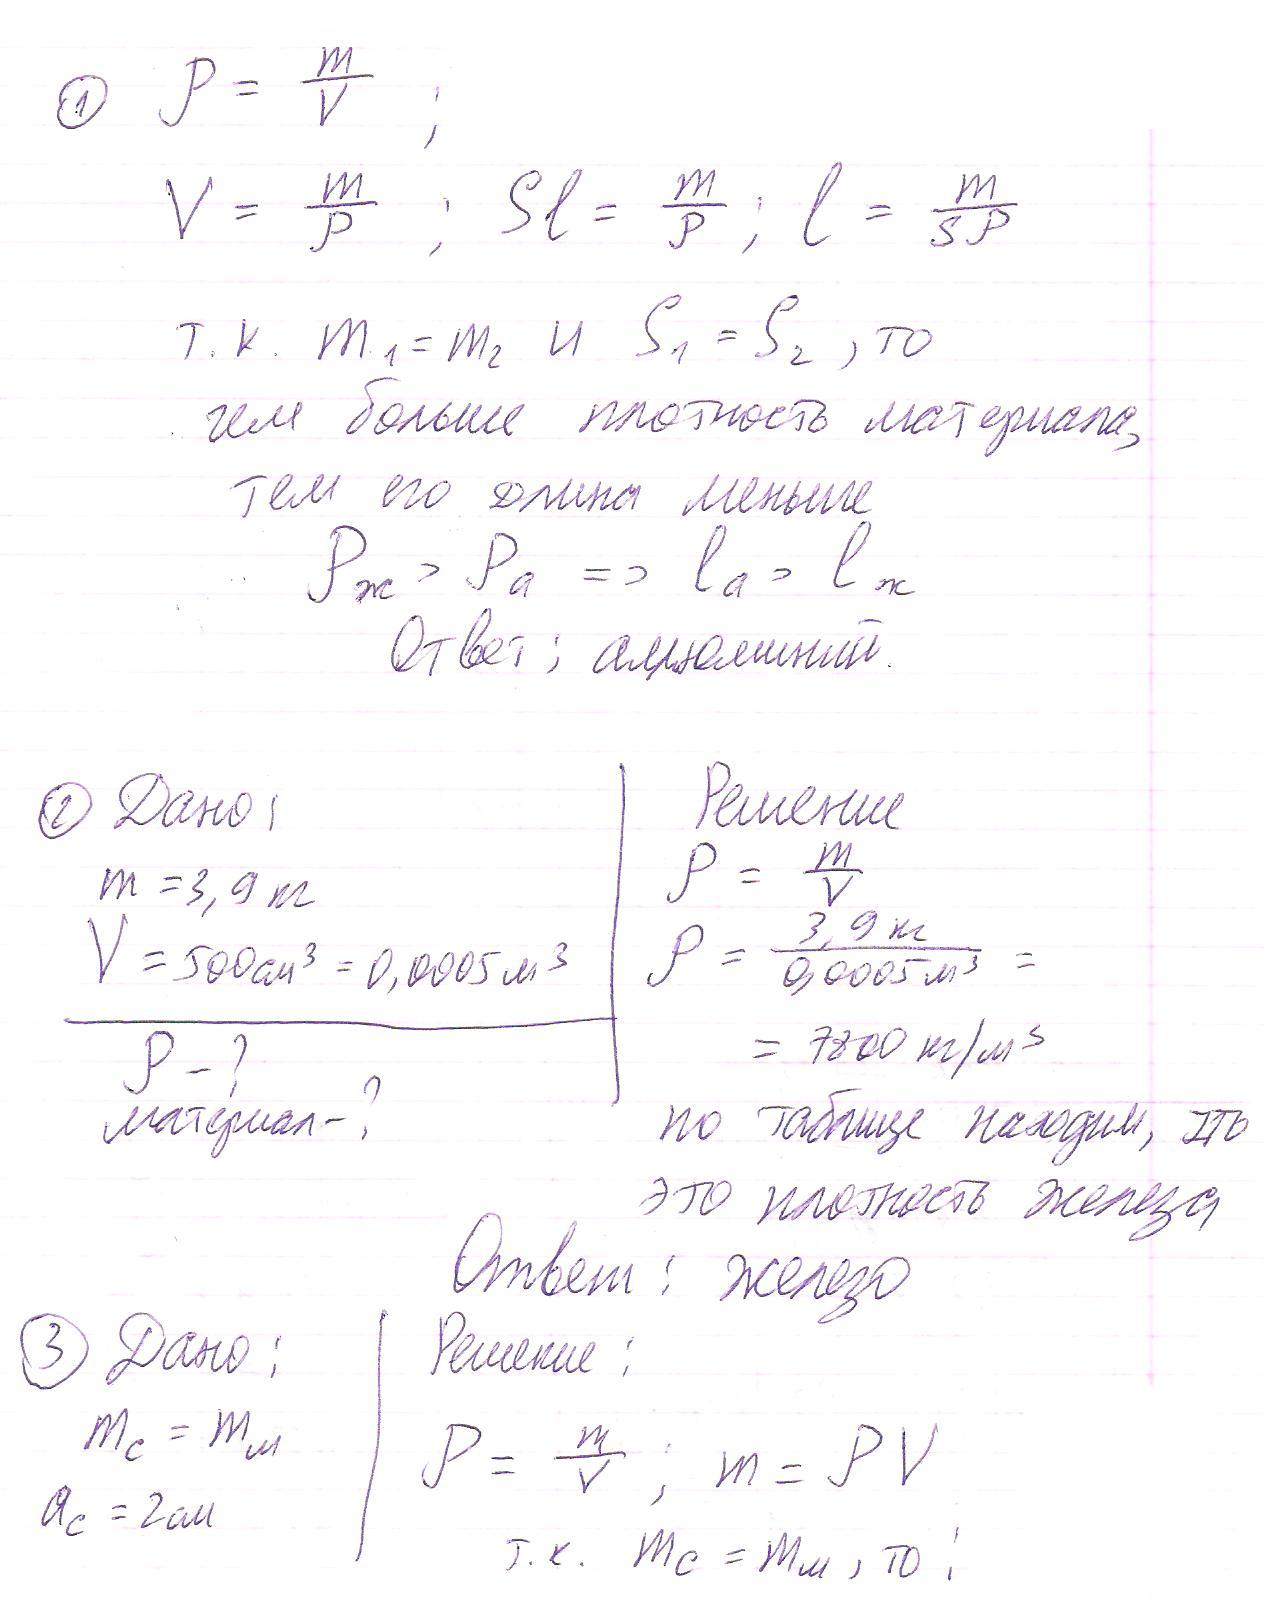 ① ρ = m/V ;
V = m/ρ ; Sl = m/ρ ; l = m/Sρ
т.к. m₁ = m₂ и S₁ = S₂ , то
чем больше плотность материала,
тем его длина меньше
ρж > ρа => lа > lж
Ответ: алюминий.
② Дано:
m = 3,9 кг
V = 500 см³ = 0,0005 м³
ρ - ?
материал - ?
Решение
ρ = m/V
ρ = 3,9 кг/0,0005 м³ =
= 7800 кг/м³
по таблице находим, что
это плотность железа
Ответ: железо
③ Дано:
mс = mм
aс = 2 см
Решение:
ρ = m/V ; m = ρV
т.к. mс = mм , то :